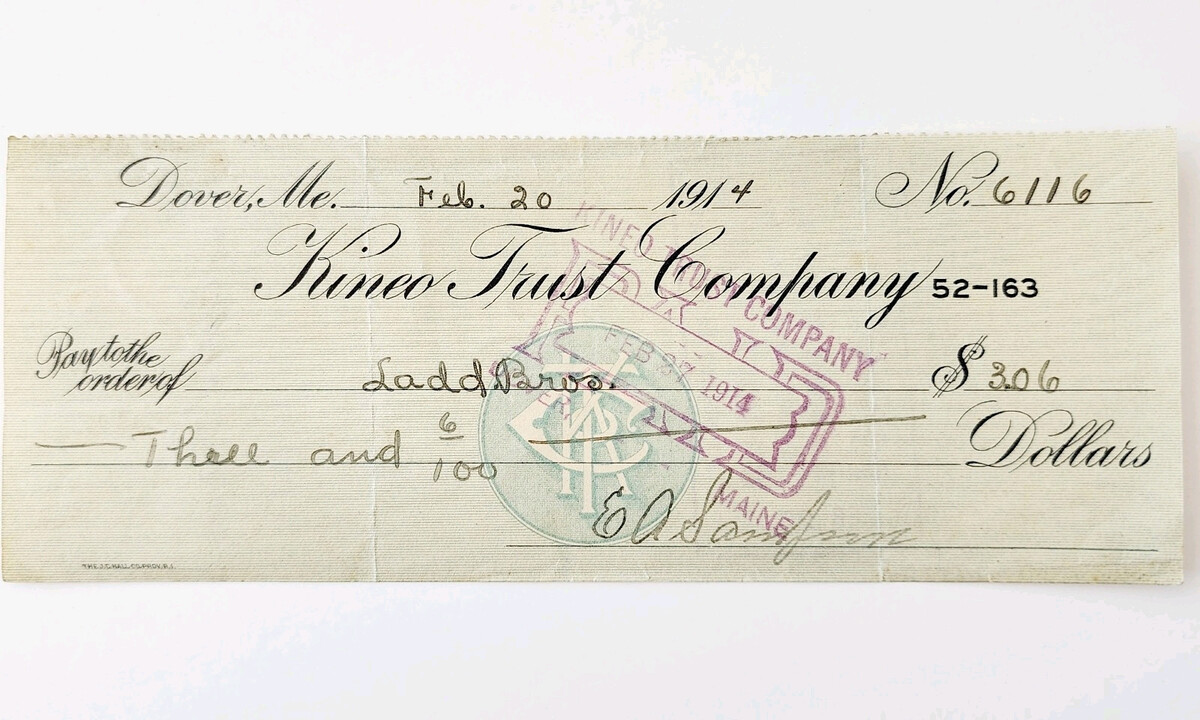 Dover, Me. Feb. 20 1914 No. 6116
Kineo Trust Company 52-163
Pay to the order of Ladd Bros. $ 3.06
Three and 6/100 Dollars
E A Sampson
KINEO TRUST COMPANY
PAID
FEB 27 1914
DOVER,
MAINE
KTC
THE J.C. HALL CO. PROV. R.I.